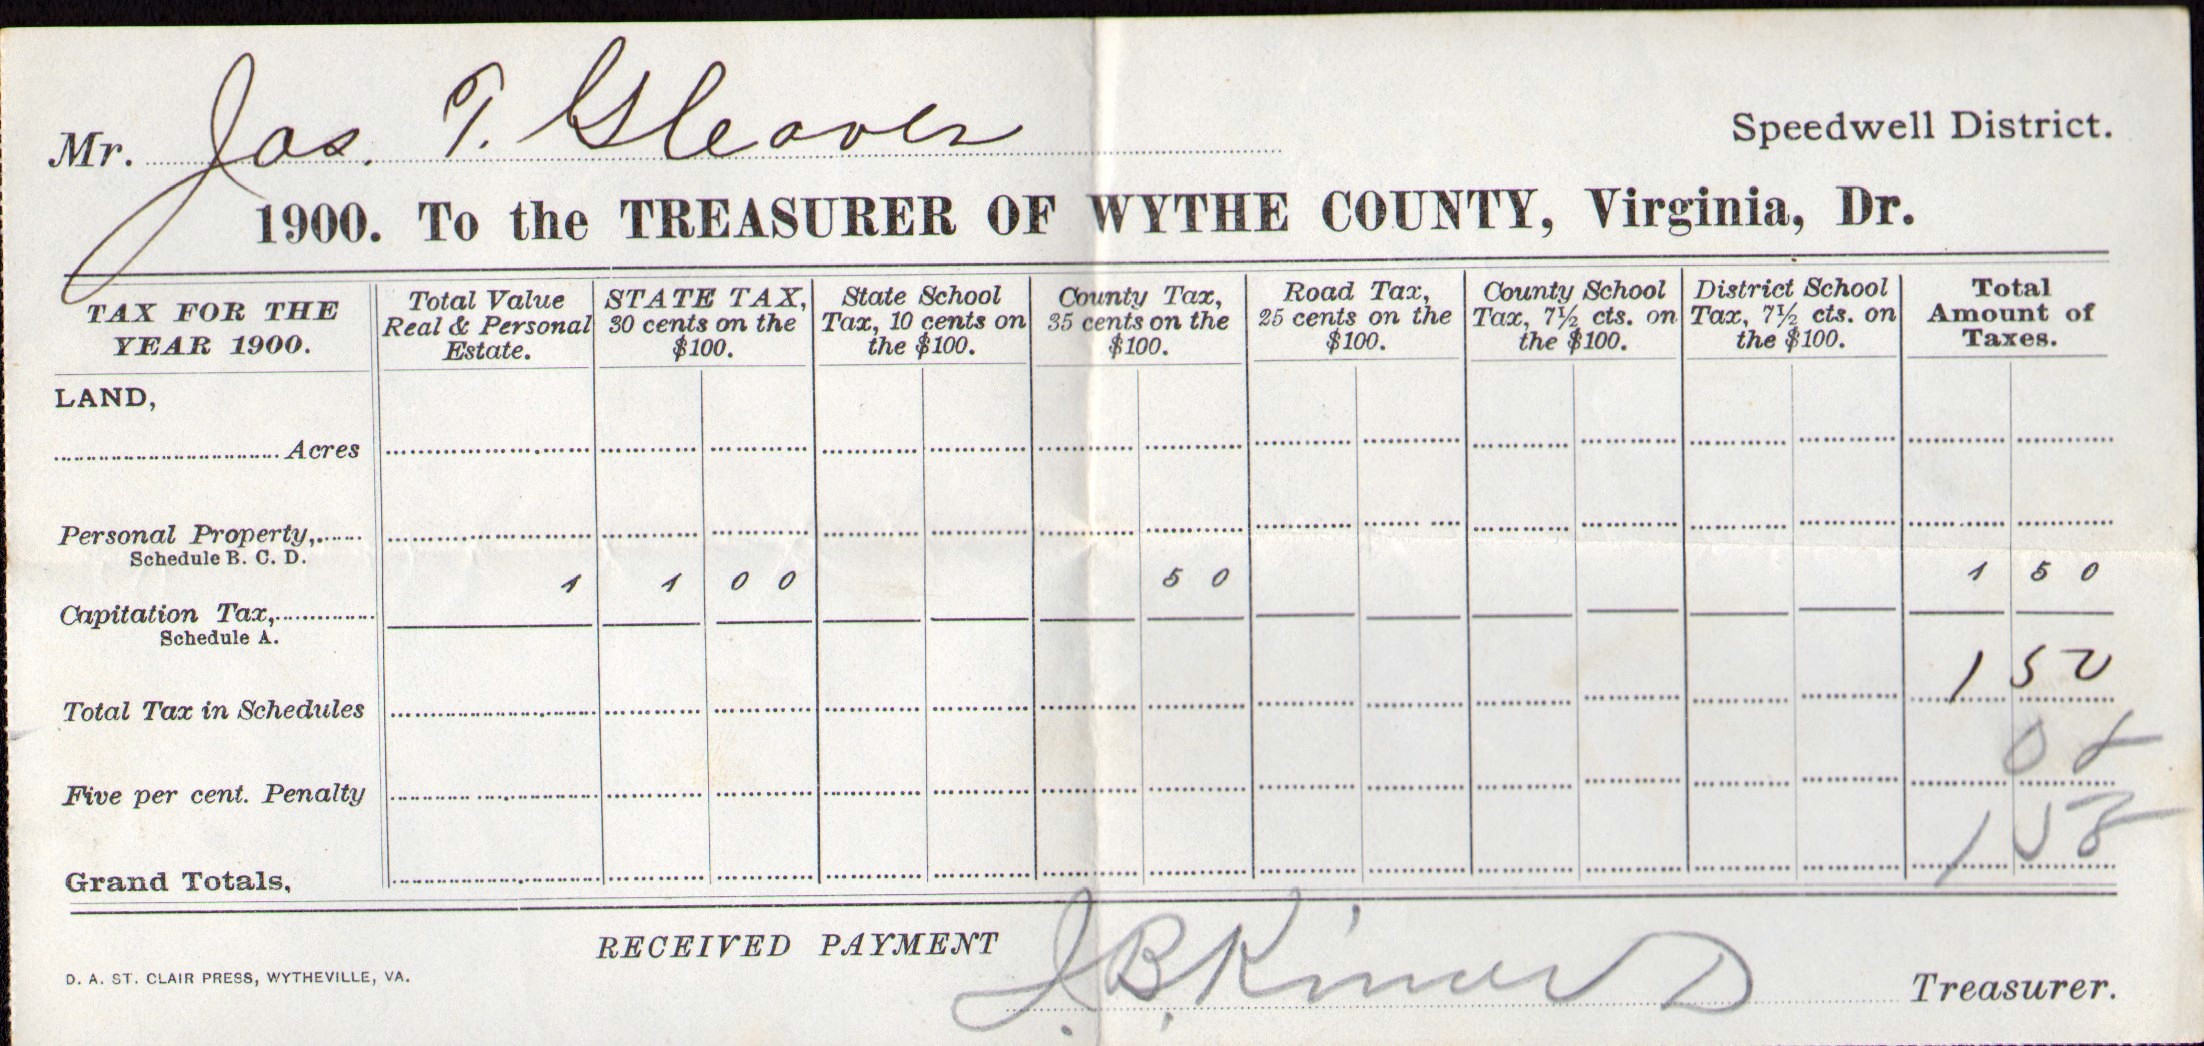 Mr. Jas. T. Gleaves
Speedwell District.
1900. To the TREASURER OF WYTHE COUNTY, Virginia, Dr.
TAX FOR THE YEAR 1900.
Total Value Real & Personal Estate.
STATE TAX, 30 cents on the $100.
State School Tax, 10 cents on the $100.
County Tax, 35 cents on the $100.
Road Tax, 25 cents on the $100.
County School Tax, 7½ cts. on the $100.
District School Tax, 7½ cts. on the $100.
Total Amount of Taxes.
LAND,
Acres
Personal Property,
Schedule B. C. D.
Capitation Tax, 1 1 00 50 1 50
Schedule A.
Total Tax in Schedules 1 50
Five per cent. Penalty 08
Grand Totals, 1 58
RECEIVED PAYMENT J. B. Treasurer.
D. A. ST. CLAIR PRESS, WYTHEVILLE, VA.